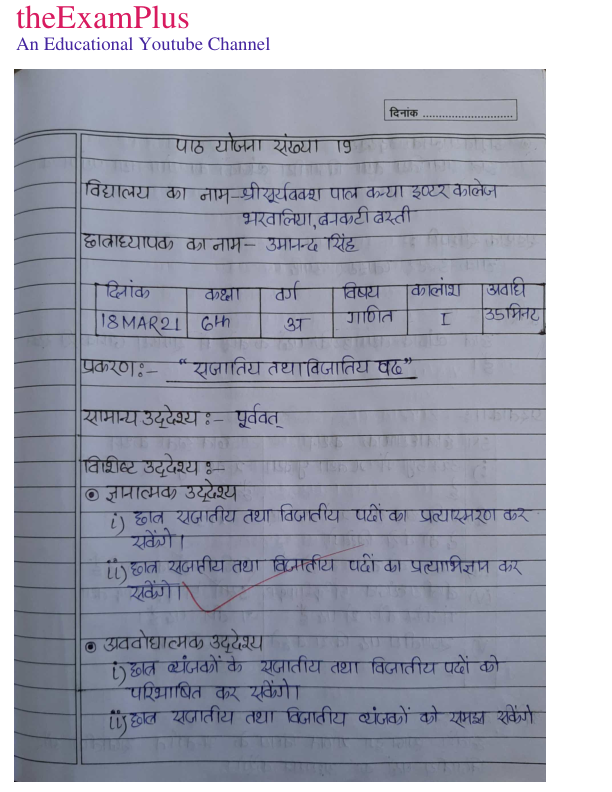 theExamPlus
An Educational Youtube Channel
दिनांक ............................
पाठ योजना संख्या 19
विद्यालय का नाम- श्री सूर्यबक्श पाल कन्या इण्टर कालेज
भरवलिया, बनकटी बस्ती
छात्राध्यापक का नाम- उमानन्द सिंह
दिनांक कक्षा वर्ग विषय कालांश अवधि
18 MAR 21 6th अ गणित I 35 मिनट
प्रकरण:- " सजातिय तथा विजातिय पद"
सामान्य उद्देश्य :- पूर्ववत्
विशिष्ट उद्देश्य :-
ज्ञानात्मक उद्देश्य
i) छात्र सजातीय तथा विजातीय पदों का प्रत्यास्मरण कर
सकेंगे।
ii) छात्र सजातीय तथा विजातीय पदों का प्रत्याभिज्ञान कर
सकेंगे।
अवबोधात्मक उद्देश्य
i) छात्र व्यंजकों के सजातीय तथा विजातीय पदों को
परिभाषित कर सकेंगे।
ii) छात्र सजातीय तथा विजातीय व्यंजकों को समझ सकेंगे